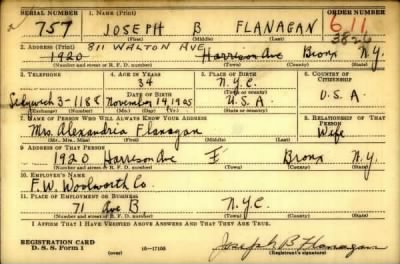 SERIAL NUMBER 1. NAME (Print) ORDER NUMBER
a 757 JOSEPH B FLANAGAN 611
(First) (Middle) (Last) 3826
2. ADDRESS (Print) 811 WALTON AVE
1920 Harrison Ave Bronx N.Y.
(Number and street or R. F. D. number) (Town) (County) (State)
3. TELEPHONE 4. AGE IN YEARS 5. PLACE OF BIRTH 6. COUNTRY OF CITIZENSHIP
34 N.Y.C.
DATE OF BIRTH (Town or county)
Sedgwick 3-1188 November 19, 1905 U.S.A U.S.A
(Exchange) (Number) (Mo.) (Day) (Yr.) (State or country)
7. NAME OF PERSON WHO WILL ALWAYS KNOW YOUR ADDRESS 8. RELATIONSHIP OF THAT PERSON
Mrs. Alexandria Flanagan Wife
(Mr., Mrs., Miss) (First) (Middle) (Last)
9. ADDRESS OF THAT PERSON
1920 Harrison Ave Bronx N.Y.
(Number and street or R. F. D. number) (Town) (County) (State)
10. EMPLOYER'S NAME
F.W. Woolworth Co.
11. PLACE OF EMPLOYMENT OR BUSINESS
71 Ave B N.Y.C.
(Number and street or R. F. D. number) (Town) (County) (State)
I AFFIRM THAT I HAVE VERIFIED ABOVE ANSWERS AND THAT THEY ARE TRUE.
REGISTRATION CARD
D. S. S. Form 1 (over) 16—17105 Joseph B Flanagan
(Registrant's signature)